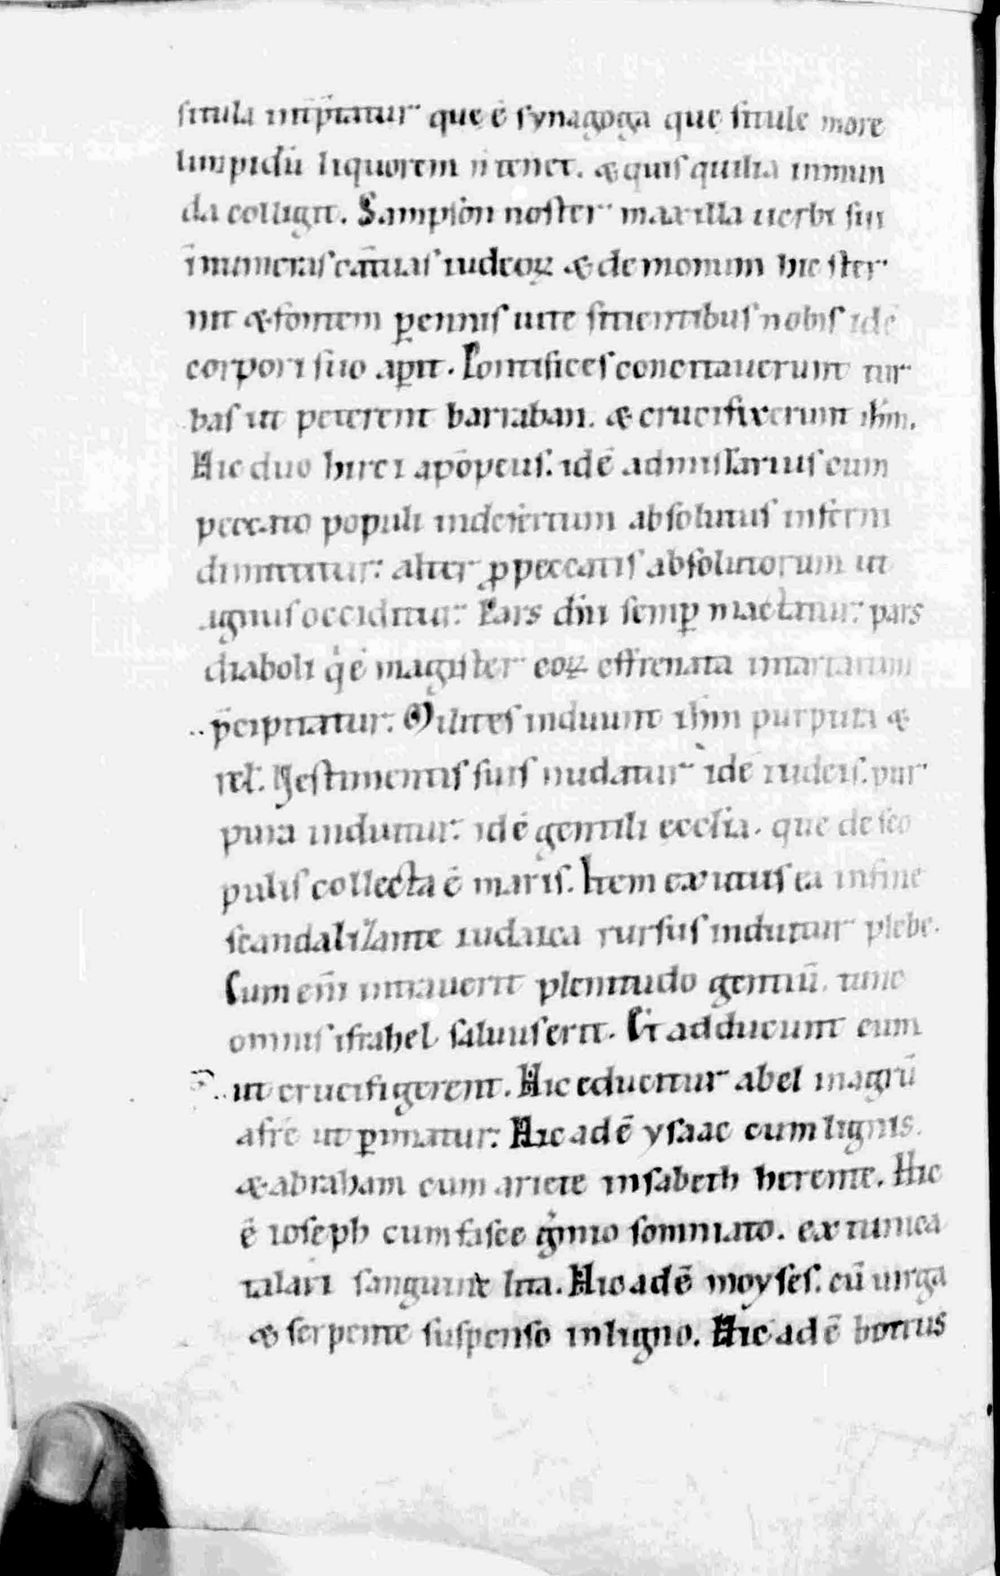 situla int̄p̄tatur que ē synagoga que situle more
limpidū liquorem n̄ tenet. & quisquilia inmun
da colligit. Sampson noster maxilla uerbi sui
īnumeras cat̄uas iudeoꝝ & demonum hic ster
nit & fontem ꝑennis uite sitientibus nobis idē
corpori suo aꝑit. Pontifices concitauerunt tur
bas ut peterent barraban. & crucifixerunt ihm̄.
Hic duo hirci apōpeus. idē admissarius cum
peccato populi indesertum absolutus infern
dimittitur: alter ꝓ peccatis absolutorum ut
agnus occiditur: Pars dn̄i semꝑ mactatur: pars
diaboli q̇ ē magister eoꝝ effrenata intartarum
p̄cipitatur: Milites induunt ihm̄ purpura &
rel̄. Uestimentis suis nudatur idē iudeis. pur
pura induitur: idē gentili ecclia. que desco
pulis collecta ē maris. Item exutus ea infine
scandalizante iudaica rursus induitur plebe.
Cum em̄ intrauerit plenitudo gentiū. tunc
omnis israhel saluus erit. Et adducunt eum
ut crucifigerent. Hic educitur abel inagrū
afrē ut ꝑimatur: Hic adē ysaac cum lignis.
& abraham cum ariete insabeth herente. Hic
ē ioseph cum fasce gm̄io somniato. ex tunica
talari sanguine lita. Hic adē moyses. cū uirga
& serpente suspenso inligno. Hic adē botrus